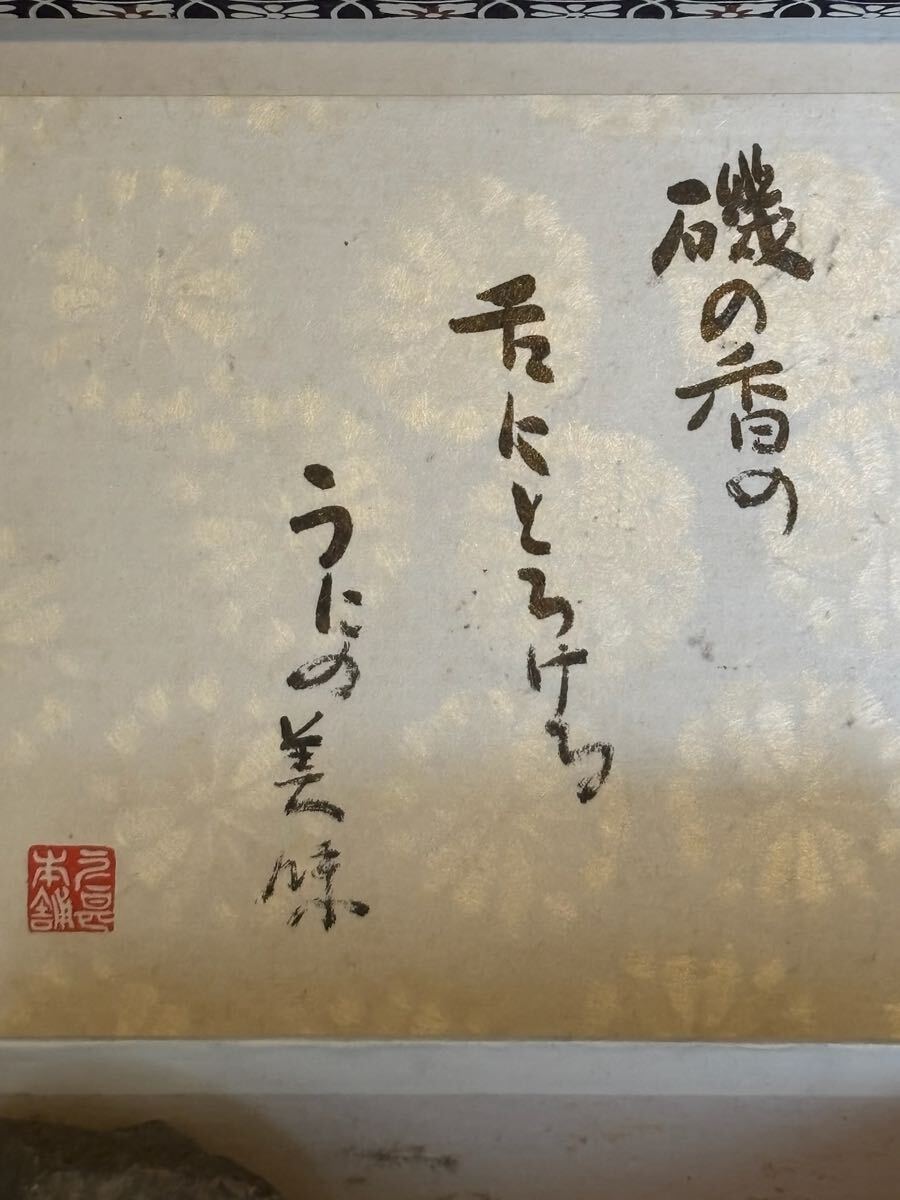 磯の香の
舌にとろける
うにの美味
本舗